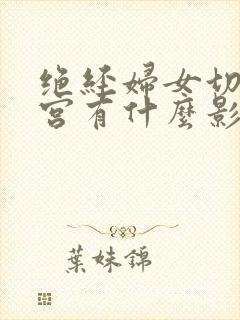 绝经婦女切
宮有什麼影
葉妹錦